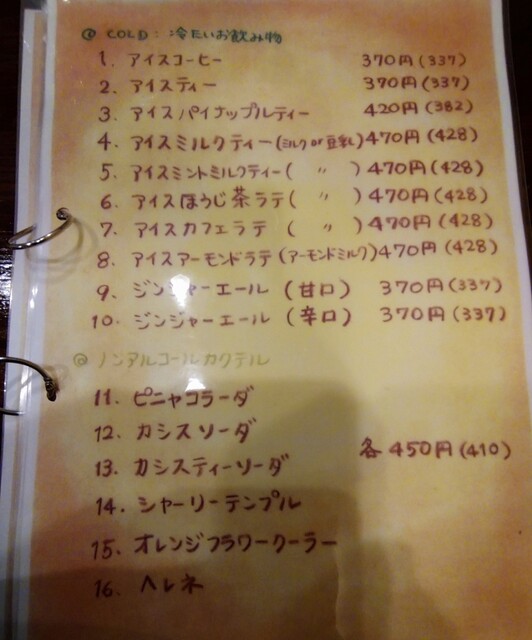 ◎ COLD: 冷たいお飲み物
1. アイスコーヒー 370円(337)
2. アイスティー 370円(337)
3. アイスパイナップルティー 420円(382)
4. アイスミルクティー(ミルクor豆乳) 470円(428)
5. アイスミントミルクティー( 〃 ) 470円(428)
6. アイスほうじ茶ラテ( 〃 ) 470円(428)
7. アイスカフェラテ ( 〃 ) 470円(428)
8. アイスアーモンドラテ(アーモンドミルク) 470円(428)
9. ジンジャーエール (甘口) 370円(337)
10. ジンジャーエール (辛口) 370円(337)
◎ ノンアルコールカクテル
11. ピニャコラーダ
12. カシスソーダ
各450円(410)
13. カシスティーソーダ
14. シャーリーテンプル
15. オレンジフラワークーラー
16. ヘレネ